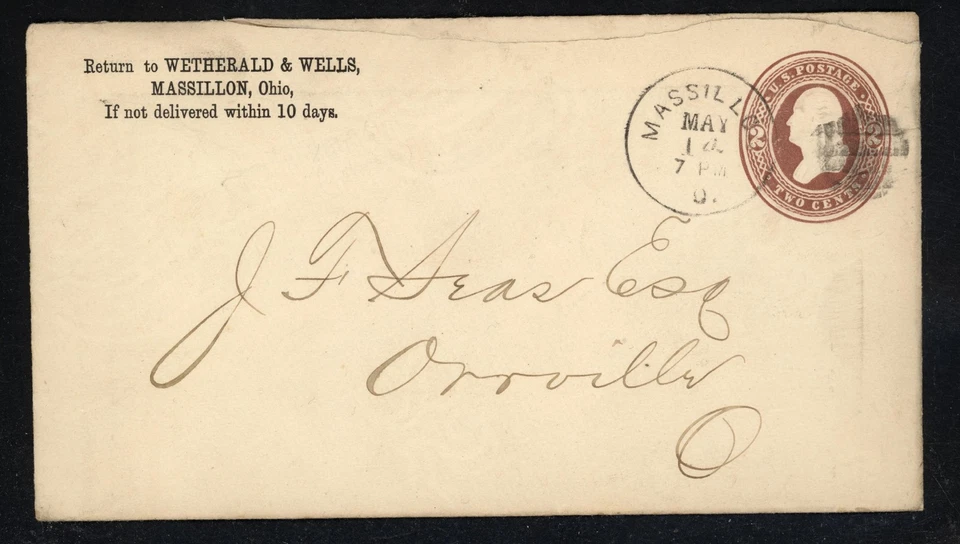 Return to WETHERALD & WELLS,
MASSILLON, Ohio,
If not delivered within 10 days.
MASSILLO
MAY
14
7 PM
O.
U.S. POSTAGE
2 2
TWO CENTS
J F Seas Esq
Orrville
O